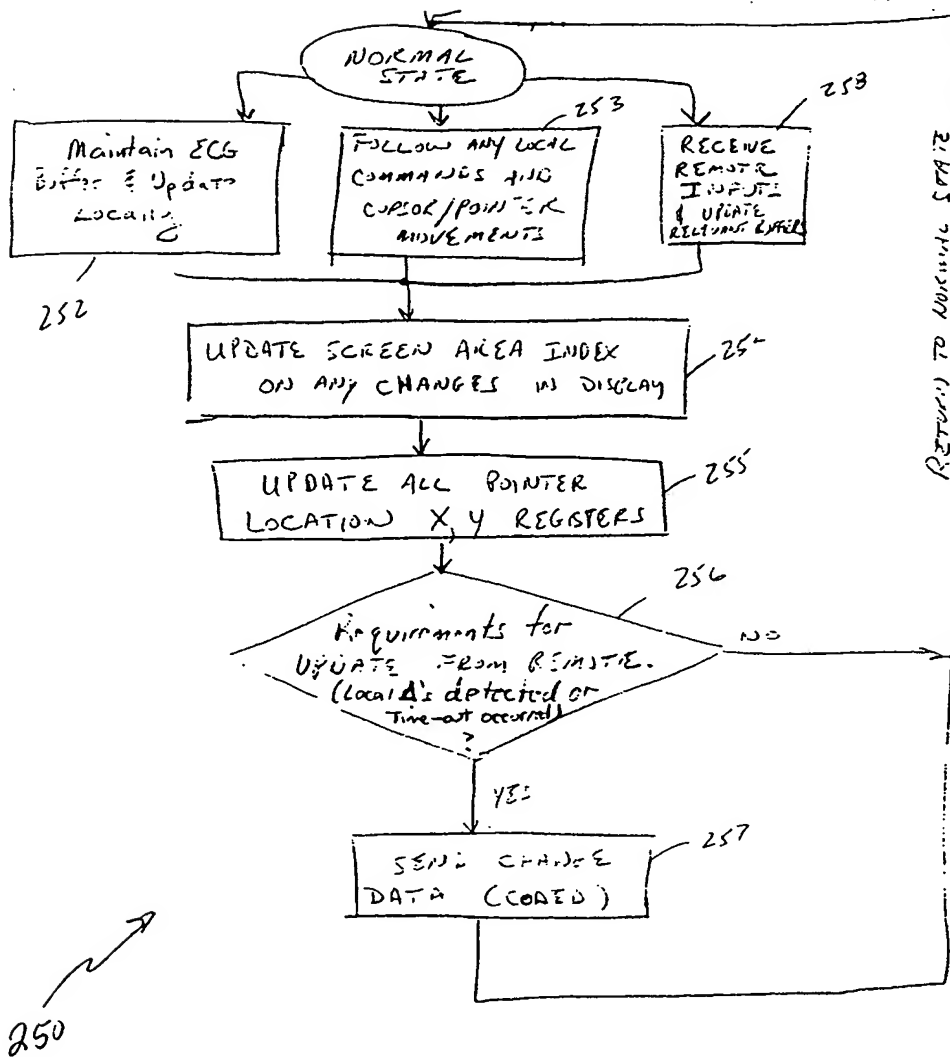 NORMAL
STATE
Maintain ECG
Buffer & Update
Locally
252
253
FOLLOW ANY LOCAL
COMMANDS AND
CURSOR/POINTER
MOVEMENTS
258
RECEIVE
REMOTE
INPUTS
& UPDATE
RELEVANT BUFFERS
RETURN TO NORMAL STATE
UPDATE SCREEN AREA INDEX
ON ANY CHANGES IN DISPLAY
254
UPDATE ALL POINTER
LOCATION X,Y REGISTERS
255
256
Requirements for
UPDATE FROM REMOTE.
(Local Δ's detected or
Time-out occurred)
?
NO
YES
SEND CHANGE
DATA (CODED)
257
250